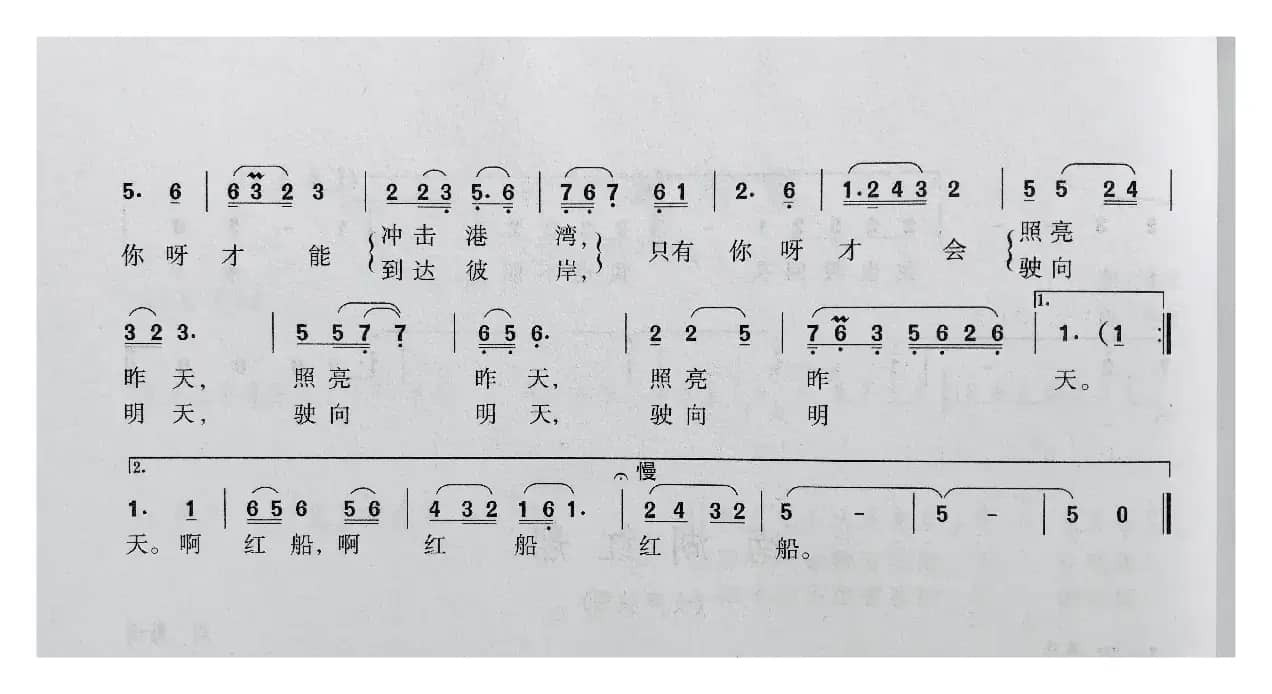 5· 6 | 6 3 2 3 | 2 2 3 5· 6 | 7 6 7 6 1 | 2· 6 | 1·2 4 3 2 | 5 5 2 4 |
你呀才能{冲击港湾,}只有你呀才会{照亮
{到达彼岸,}{驶向
1.
3 2 3· | 5 5 7 7 | 6 5 6· | 2 2 5 | 7 6 3 5 6 2 6 | 1· (1 :‖
昨天,照亮昨天,照亮昨天。
明天,驶向明天,驶向明
2. 慢
1· 1 | 6 5 6 5 6 | 4 3 2 1 6 1· | 2 4 3 2 | 5 – | 5 – | 5 0 ‖
天。啊红船,啊红船红船。